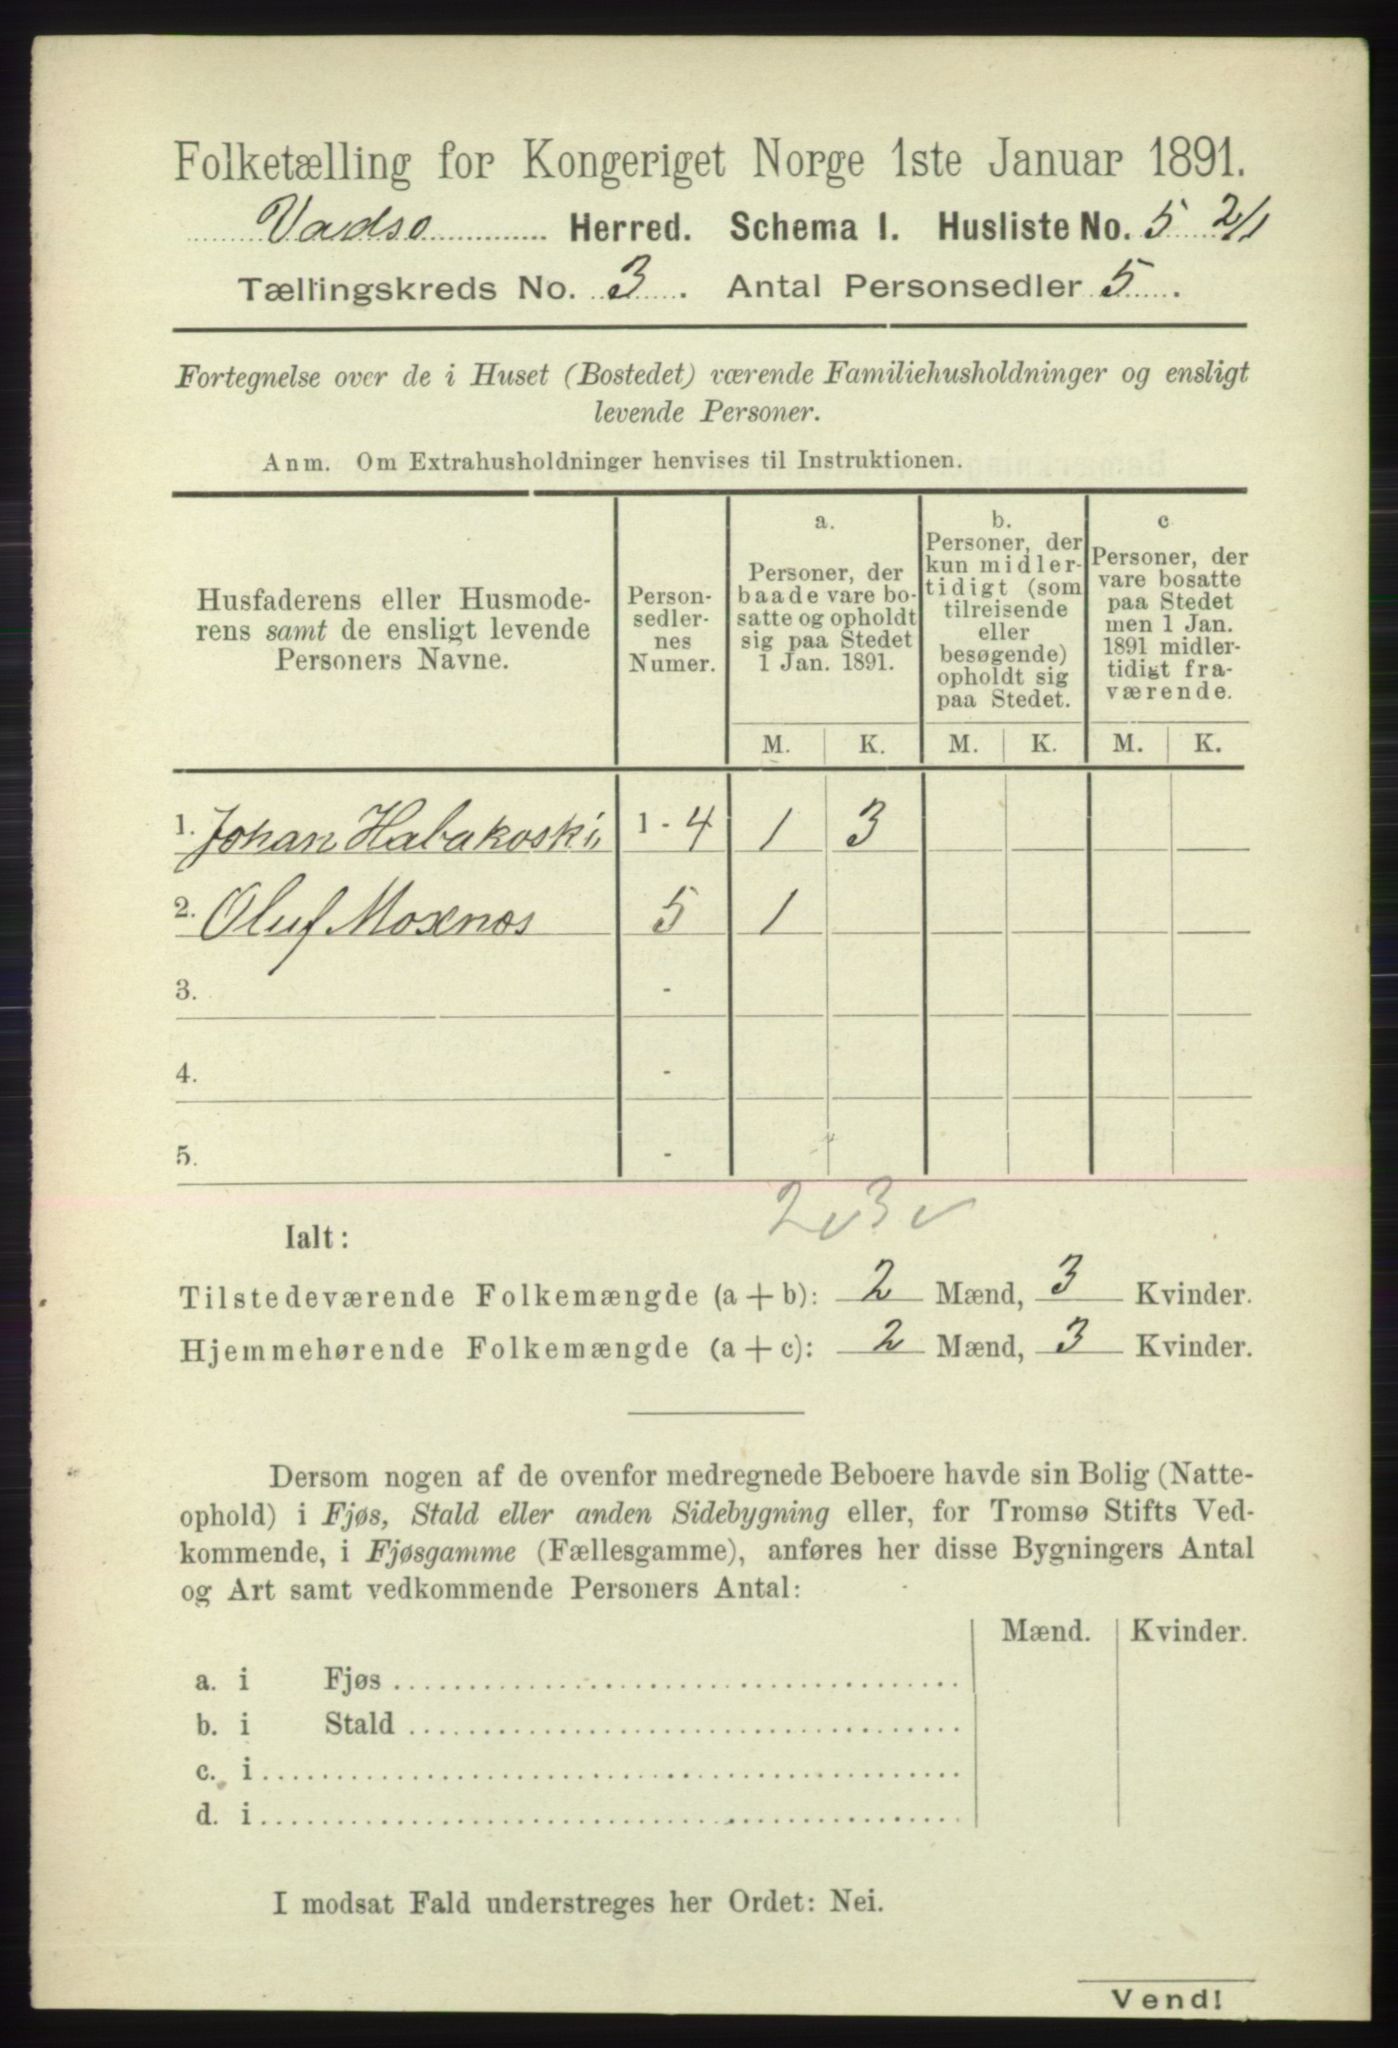 Folketælling for Kongeriget Norge 1ste Januar 1891.
Vadsø Herred. Schema I. Husliste No. 5 2/1
Tællingskreds No. 3. Antal Personsedler 5.
Fortegnelse over de i Huset (Bostedet) værende Familiehusholdninger og ensligt
levende Personer.
Anm. Om Extrahusholdninger henvises til Instruktionen.
Husfaderens eller Husmode-
rens samt de ensligt levende
Personers Navne.
Person-
sedler-
nes
Numer.
a.
Personer, der
baade vare bo-
satte og opholdt
sig paa Stedet
1 Jan. 1891.
b.
Personer, der
kun midler-
tidigt (som
tilreisende
eller
besøgende)
opholdt sig
paa Stedet.
c
Personer, der
vare bosatte
paa Stedet
men 1 Jan.
1891 midler-
tidigt fra-
værende.
M. K. M. K. M. K.
1. Johan Habakoski 1 - 4 1 3
2. Oluf Moxnæs 5 1
3. -
4. -
5. -
2 3
Ialt:
Tilstedeværende Folkemængde (a + b): 2 Mænd, 3 Kvinder.
Hjemmehørende Folkemængde (a + c): 2 Mænd, 3 Kvinder.
Dersom nogen af de ovenfor medregnede Beboere havde sin Bolig (Natte-
ophold) i Fjøs, Stald eller anden Sidebygning eller, for Tromsø Stifts Ved-
kommende, i Fjøsgamme (Fællesgamme), anføres her disse Bygningers Antal
og Art samt vedkommende Personers Antal:
Mænd. Kvinder.
a. i Fjøs
b. i Stald
c. i
d. i
I modsat Fald understreges her Ordet: Nei.
Vend!